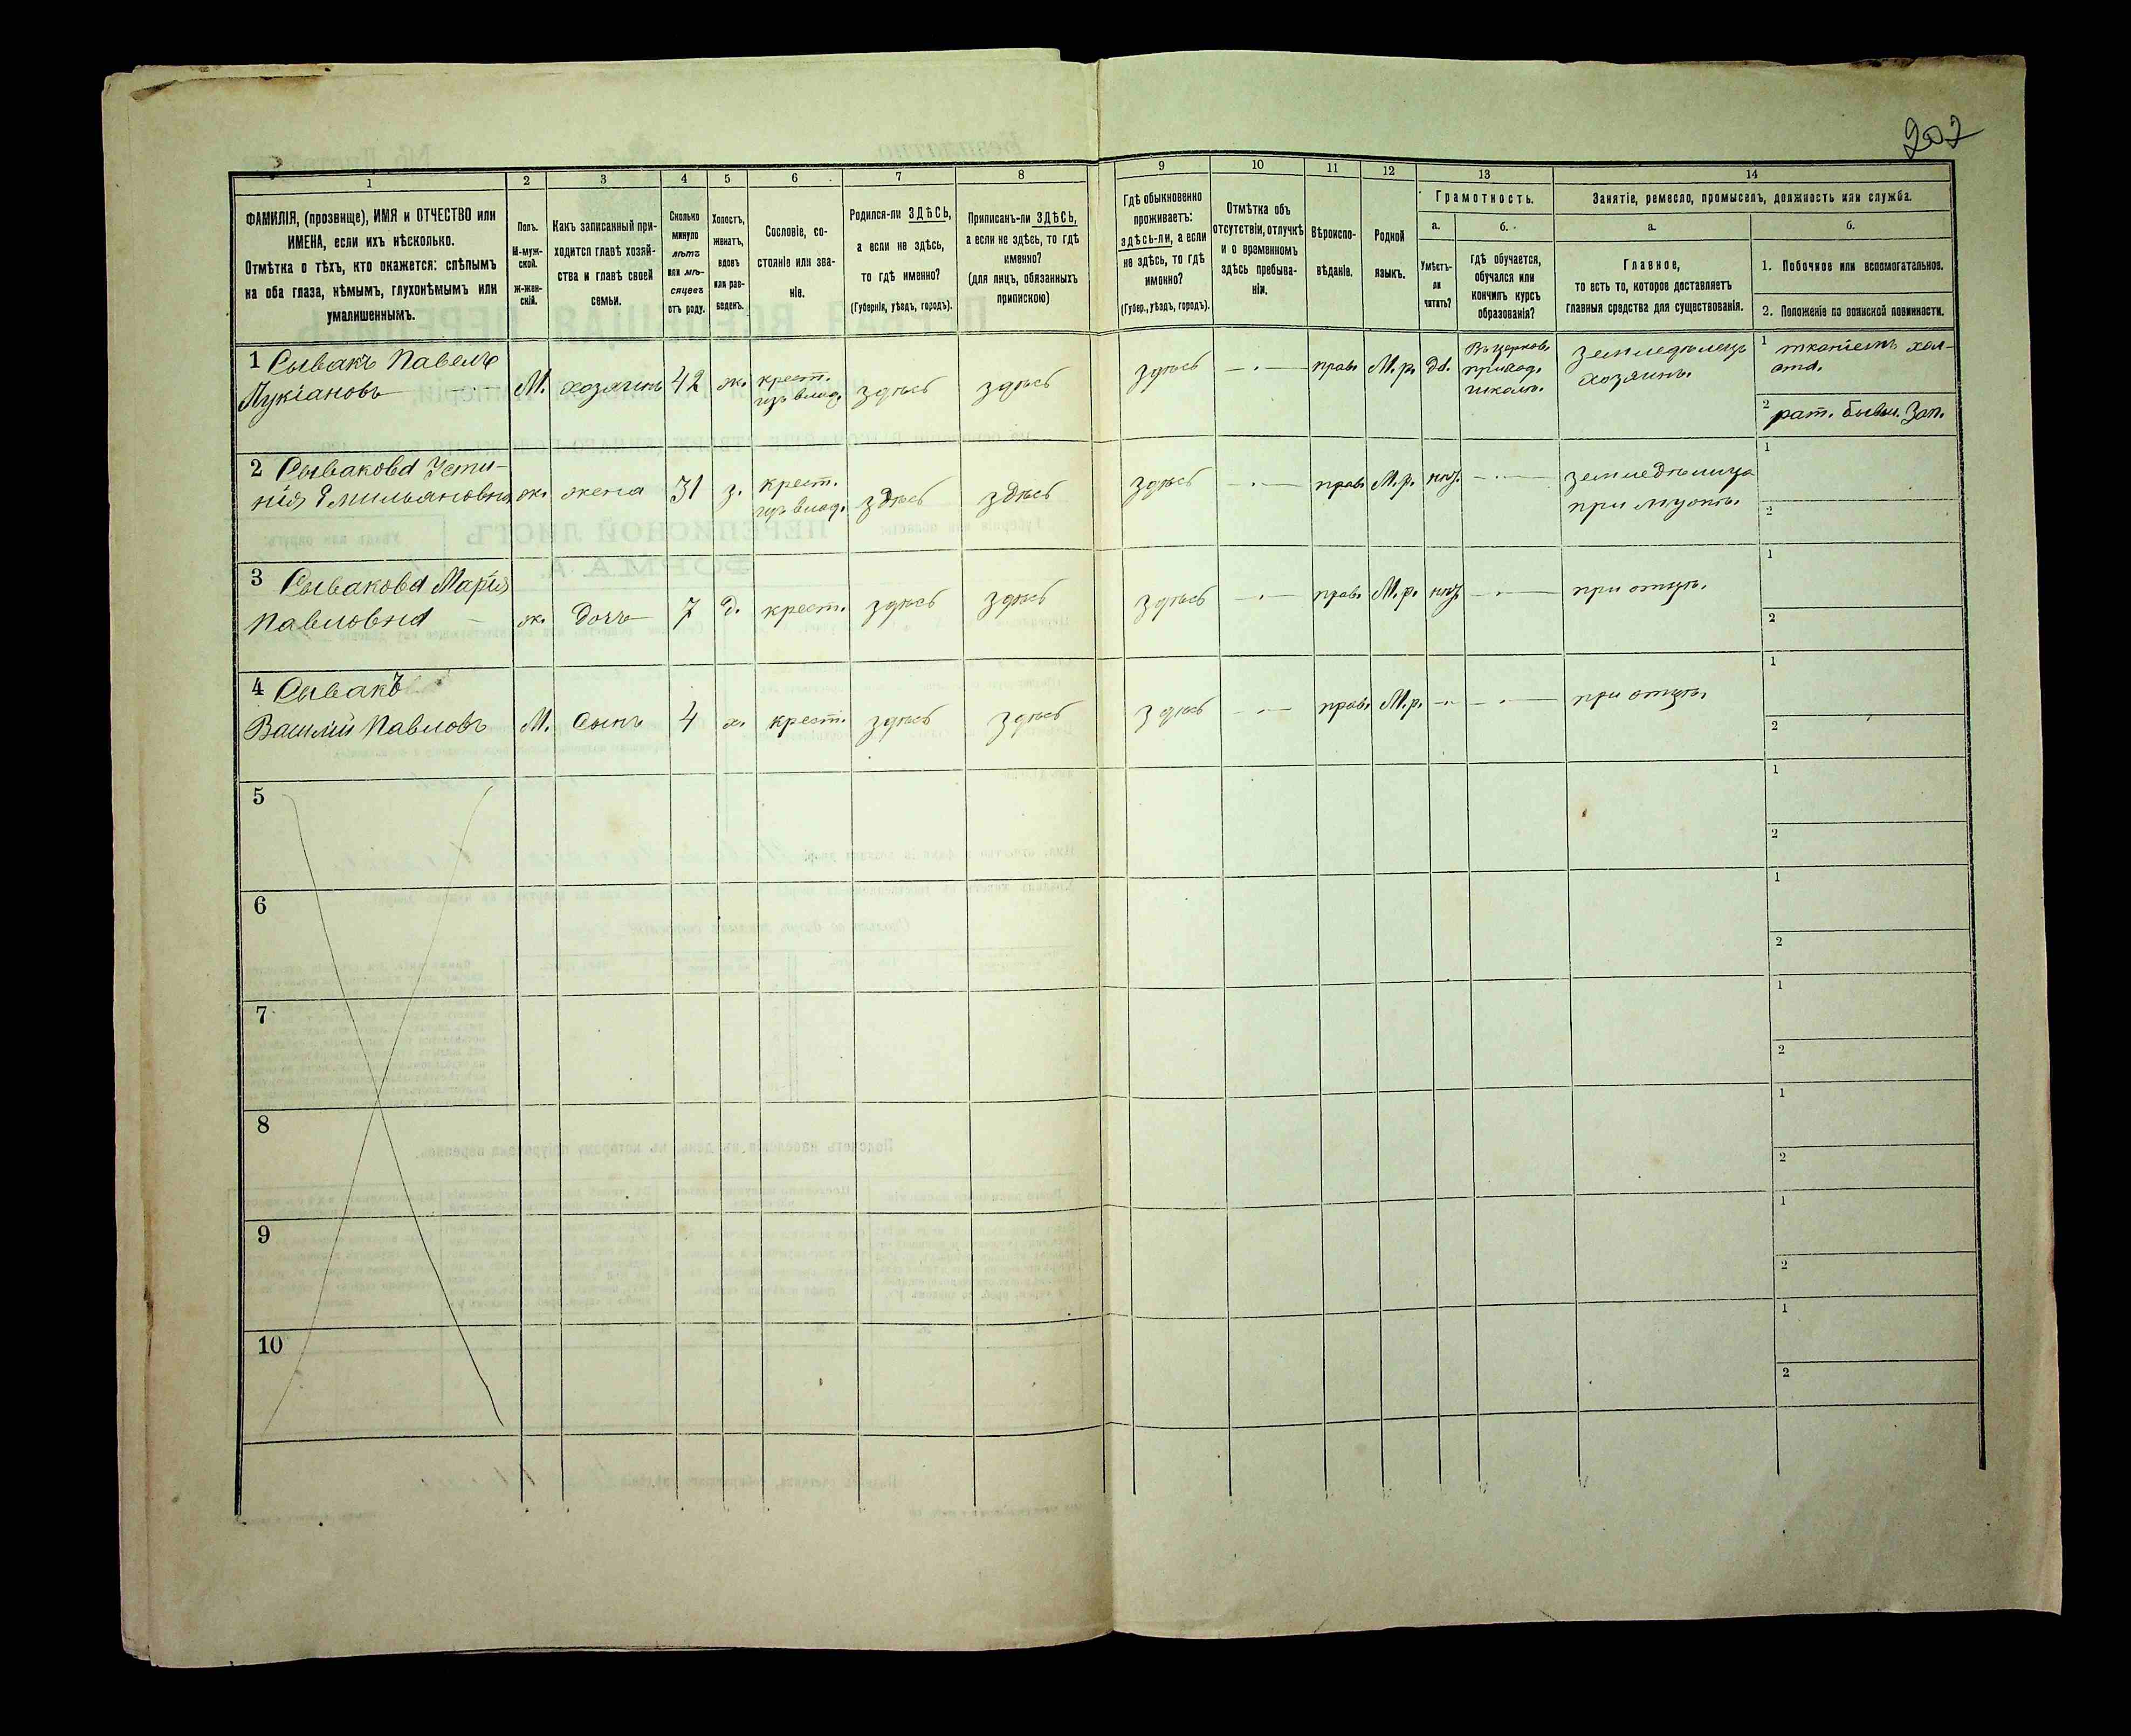 202
1 2 3 4 5 6 7 8 9 10 11 12 13 14
ФАМИЛІЯ, (прозвище), ИМЯ и ОТЧЕСТВО или
ИМЕНА, если ихъ нѣсколько.
Отмѣтка о тѣхъ, кто окажется: слѣпымъ
на оба глаза, нѣмымъ, глухонѣмымъ или
умалишеннымъ.
Полъ.
М-муж-
ской.
Ж-жен-
скій.
Какъ записанный при-
ходится главѣ хозяй-
ства и главѣ своей
семьи.
Сколько
минуло
лѣтъ
или мѣ-
сяцевъ
отъ роду.
Холостъ,
женатъ,
вдовъ
или раз-
веденъ.
Сословіе, со-
стояніе или зва-
ніе.
Родился-ли ЗДѢСЬ,
а если не здѣсь,
то гдѣ именно?
(Губернія, уѣздъ, городъ).
Приписанъ-ли ЗДѢСЬ,
а если не здѣсь, то гдѣ
именно?
(для лицъ, обязанныхъ
припискою)
Гдѣ обыкновенно
проживаетъ:
здѣсь-ли, а если
не здѣсь, то гдѣ
именно?
(Губер., уѣздъ, городъ).
Отмѣтка объ
отсутствіи, отлучкѣ
и о временномъ
здѣсь пребыва-
ніи.
Вѣроиспо-
вѣданіе.
Родной
языкъ.
Грамотность.
а.
Умѣетъ-
ли
читать?
б.
гдѣ обучается,
обучался или
кончилъ курсъ
образованія?
Занятіе, ремесло, промыселъ, должность или служба.
а.
Главное,
то есть то, которое доставляетъ
главныя средства для существованія.
б.
1. Побочное или вспомогательное.
2. Положеніе по воинской повинности.
1 Сывакъ Павелъ
Лукіановъ
М. хозяинъ 42 ж. крест.
изъ влад.
здѣсь здѣсь здѣсь — · — прав. М.р. да.
Въ церков.
приход.
школѣ.
земледѣлецъ
хозяинъ.
1 тканіемъ хол-
ста.
2 рат. бывш. Зап.
2 Сывакова Усти-
нія Емильяновна
ж. жена 31 з. крест.
изъ влад.
здѣсь здѣсь здѣсь — · — прав. М.р. нѣт. — · —
земледѣлица
при мужѣ.
1
2
3 Сывакова Марія
Павловна
ж. дочь 7 д. крест. здѣсь здѣсь здѣсь — · — прав. М.р. нѣт. — · — при отцѣ.
1
2
4 Сывакъ
Василій Павловъ
М. сынъ 4 х. крест. здѣсь здѣсь здѣсь — · — прав. М.р. — · — — · — при отцѣ.
1
2
5
1
2
6
1
2
7
1
2
8
1
2
9
1
2
10
1
2